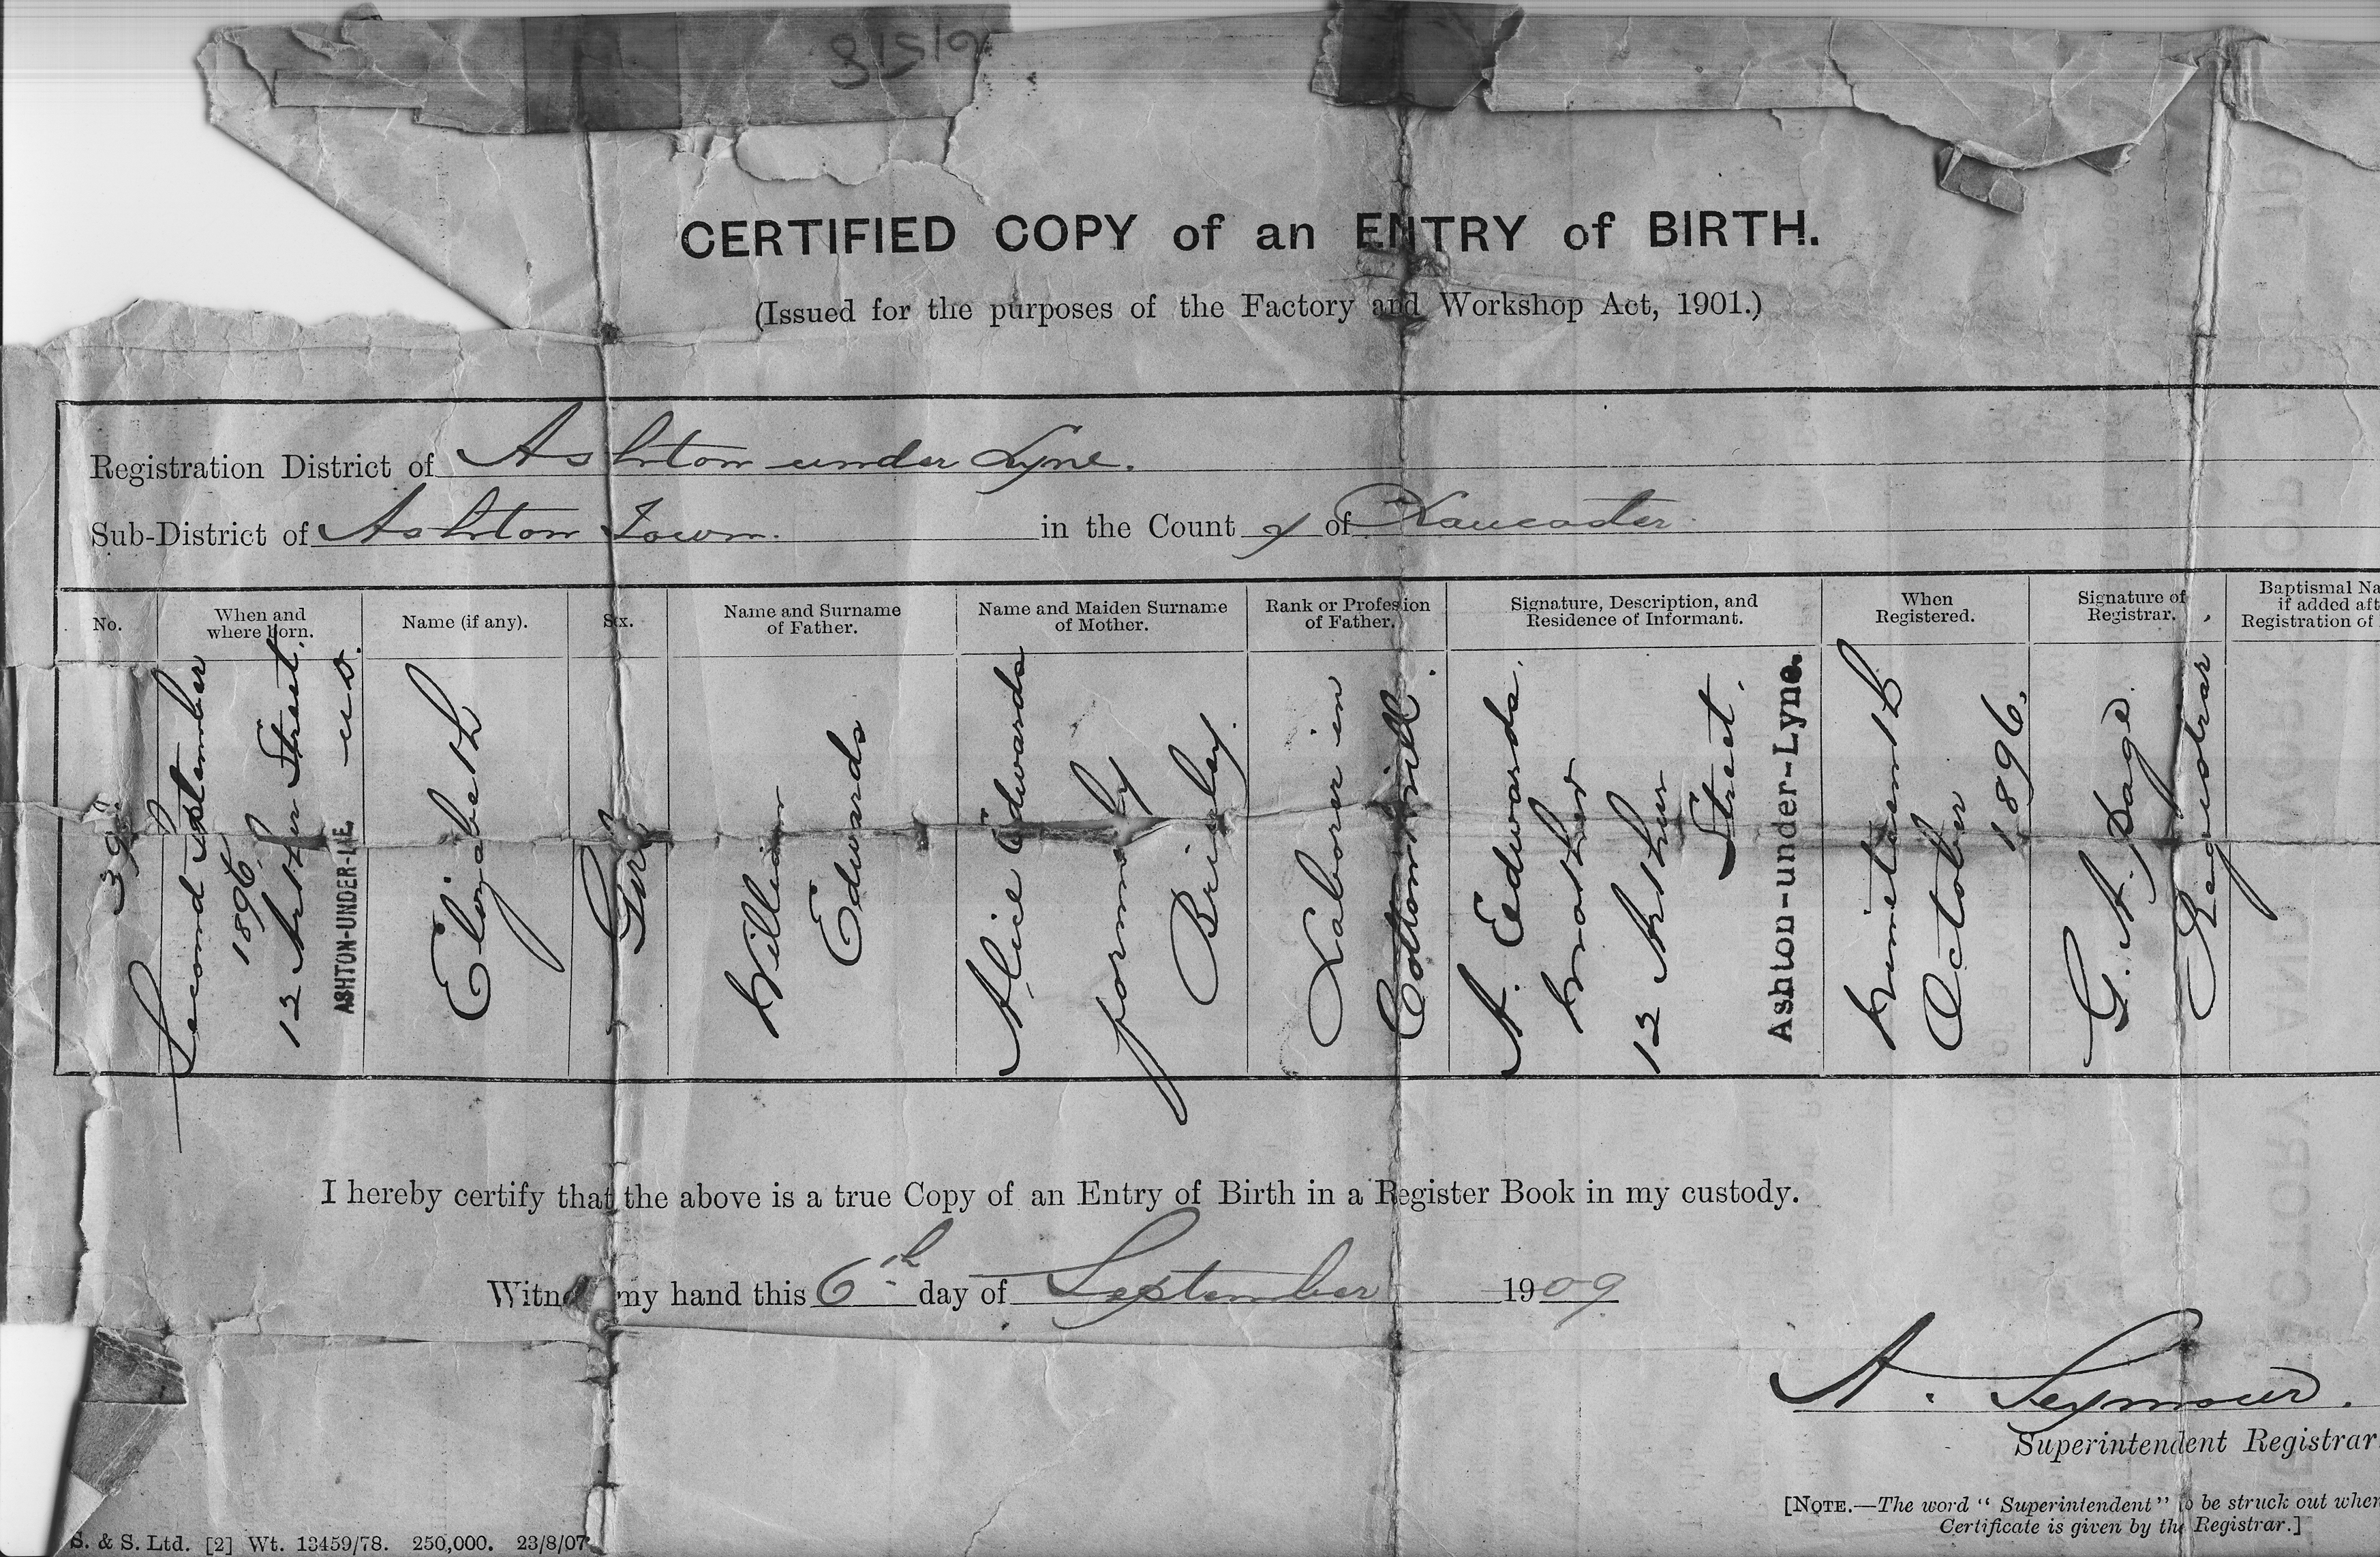 CERTIFIED COPY of an ENTRY of BIRTH.
(Issued for the purposes of the Factory and Workshop Act, 1901.)
Registration District of Ashton under Lyne.
Sub-District of Ashton Town. in the County of Lancaster.
No.
When and
where born.
Name (if any).
Sex.
Name and Surname
of Father.
Name and Maiden Surname
of Mother.
Rank or Profession
of Father.
Signature, Description, and
Residence of Informant.
When
Registered.
Signature of
Registrar.
Baptismal Na
if added aft
Registration of
39
Second September
1896
12 Arthur Street,
ASHTON-UNDER-LYNE
Elizabeth
Girl
William
Edwards
Alice Edwards
formerly
Brierley
Laborer in
Cotton Mill.
A. Edwards.
Mother
12 Arthur
Street,
Ashton-under-Lyne.
Nineteenth
October
1896.
G. A. Page
Registrar
I hereby certify that the above is a true Copy of an Entry of Birth in a Register Book in my custody.
Witness my hand this 6th day of September 1909
A. Seymour.
Superintendent Registrar
[NOTE.—The word "Superintendent" to be struck out when
Certificate is given by the Registrar.]
S. & S. Ltd. [2] Wt. 13459/78. 250,000. 23/8/07